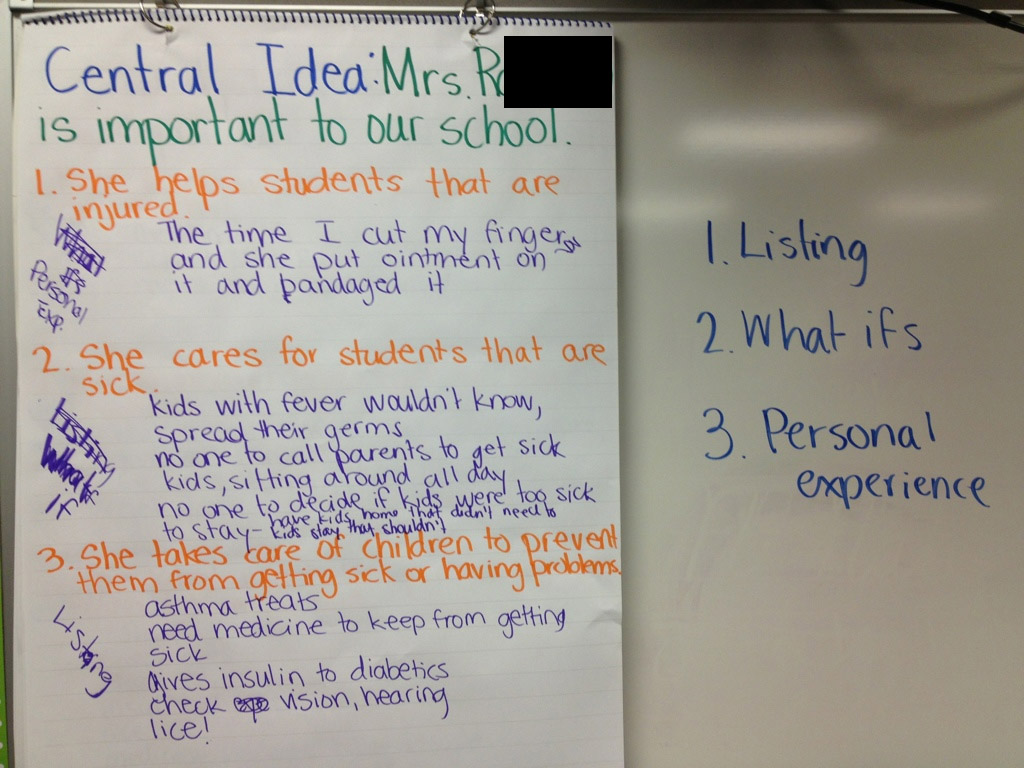 Central Idea: Mrs. R
is important to our school.
1. She helps students that are
injured.
Personal
Exp.
The time I cut my finger
and she put ointment on
it and pandaged it
2. She cares for students that are
sick.
Listing
What
if
kids with fever wouldn't know,
spread their germs
no one to call parents to get sick
kids, sitting around all day
no one to decide if kids were too sick
to stay - have kids home that didn't need to
kids stay that shouldn't
3. She takes care of children to prevent
them from getting sick or having problems.
Listing
asthma treats
need medicine to keep from getting
sick
gives insulin to diabetics
check vision, hearing
lice!
1. Listing
2. What ifs
3. Personal
experience